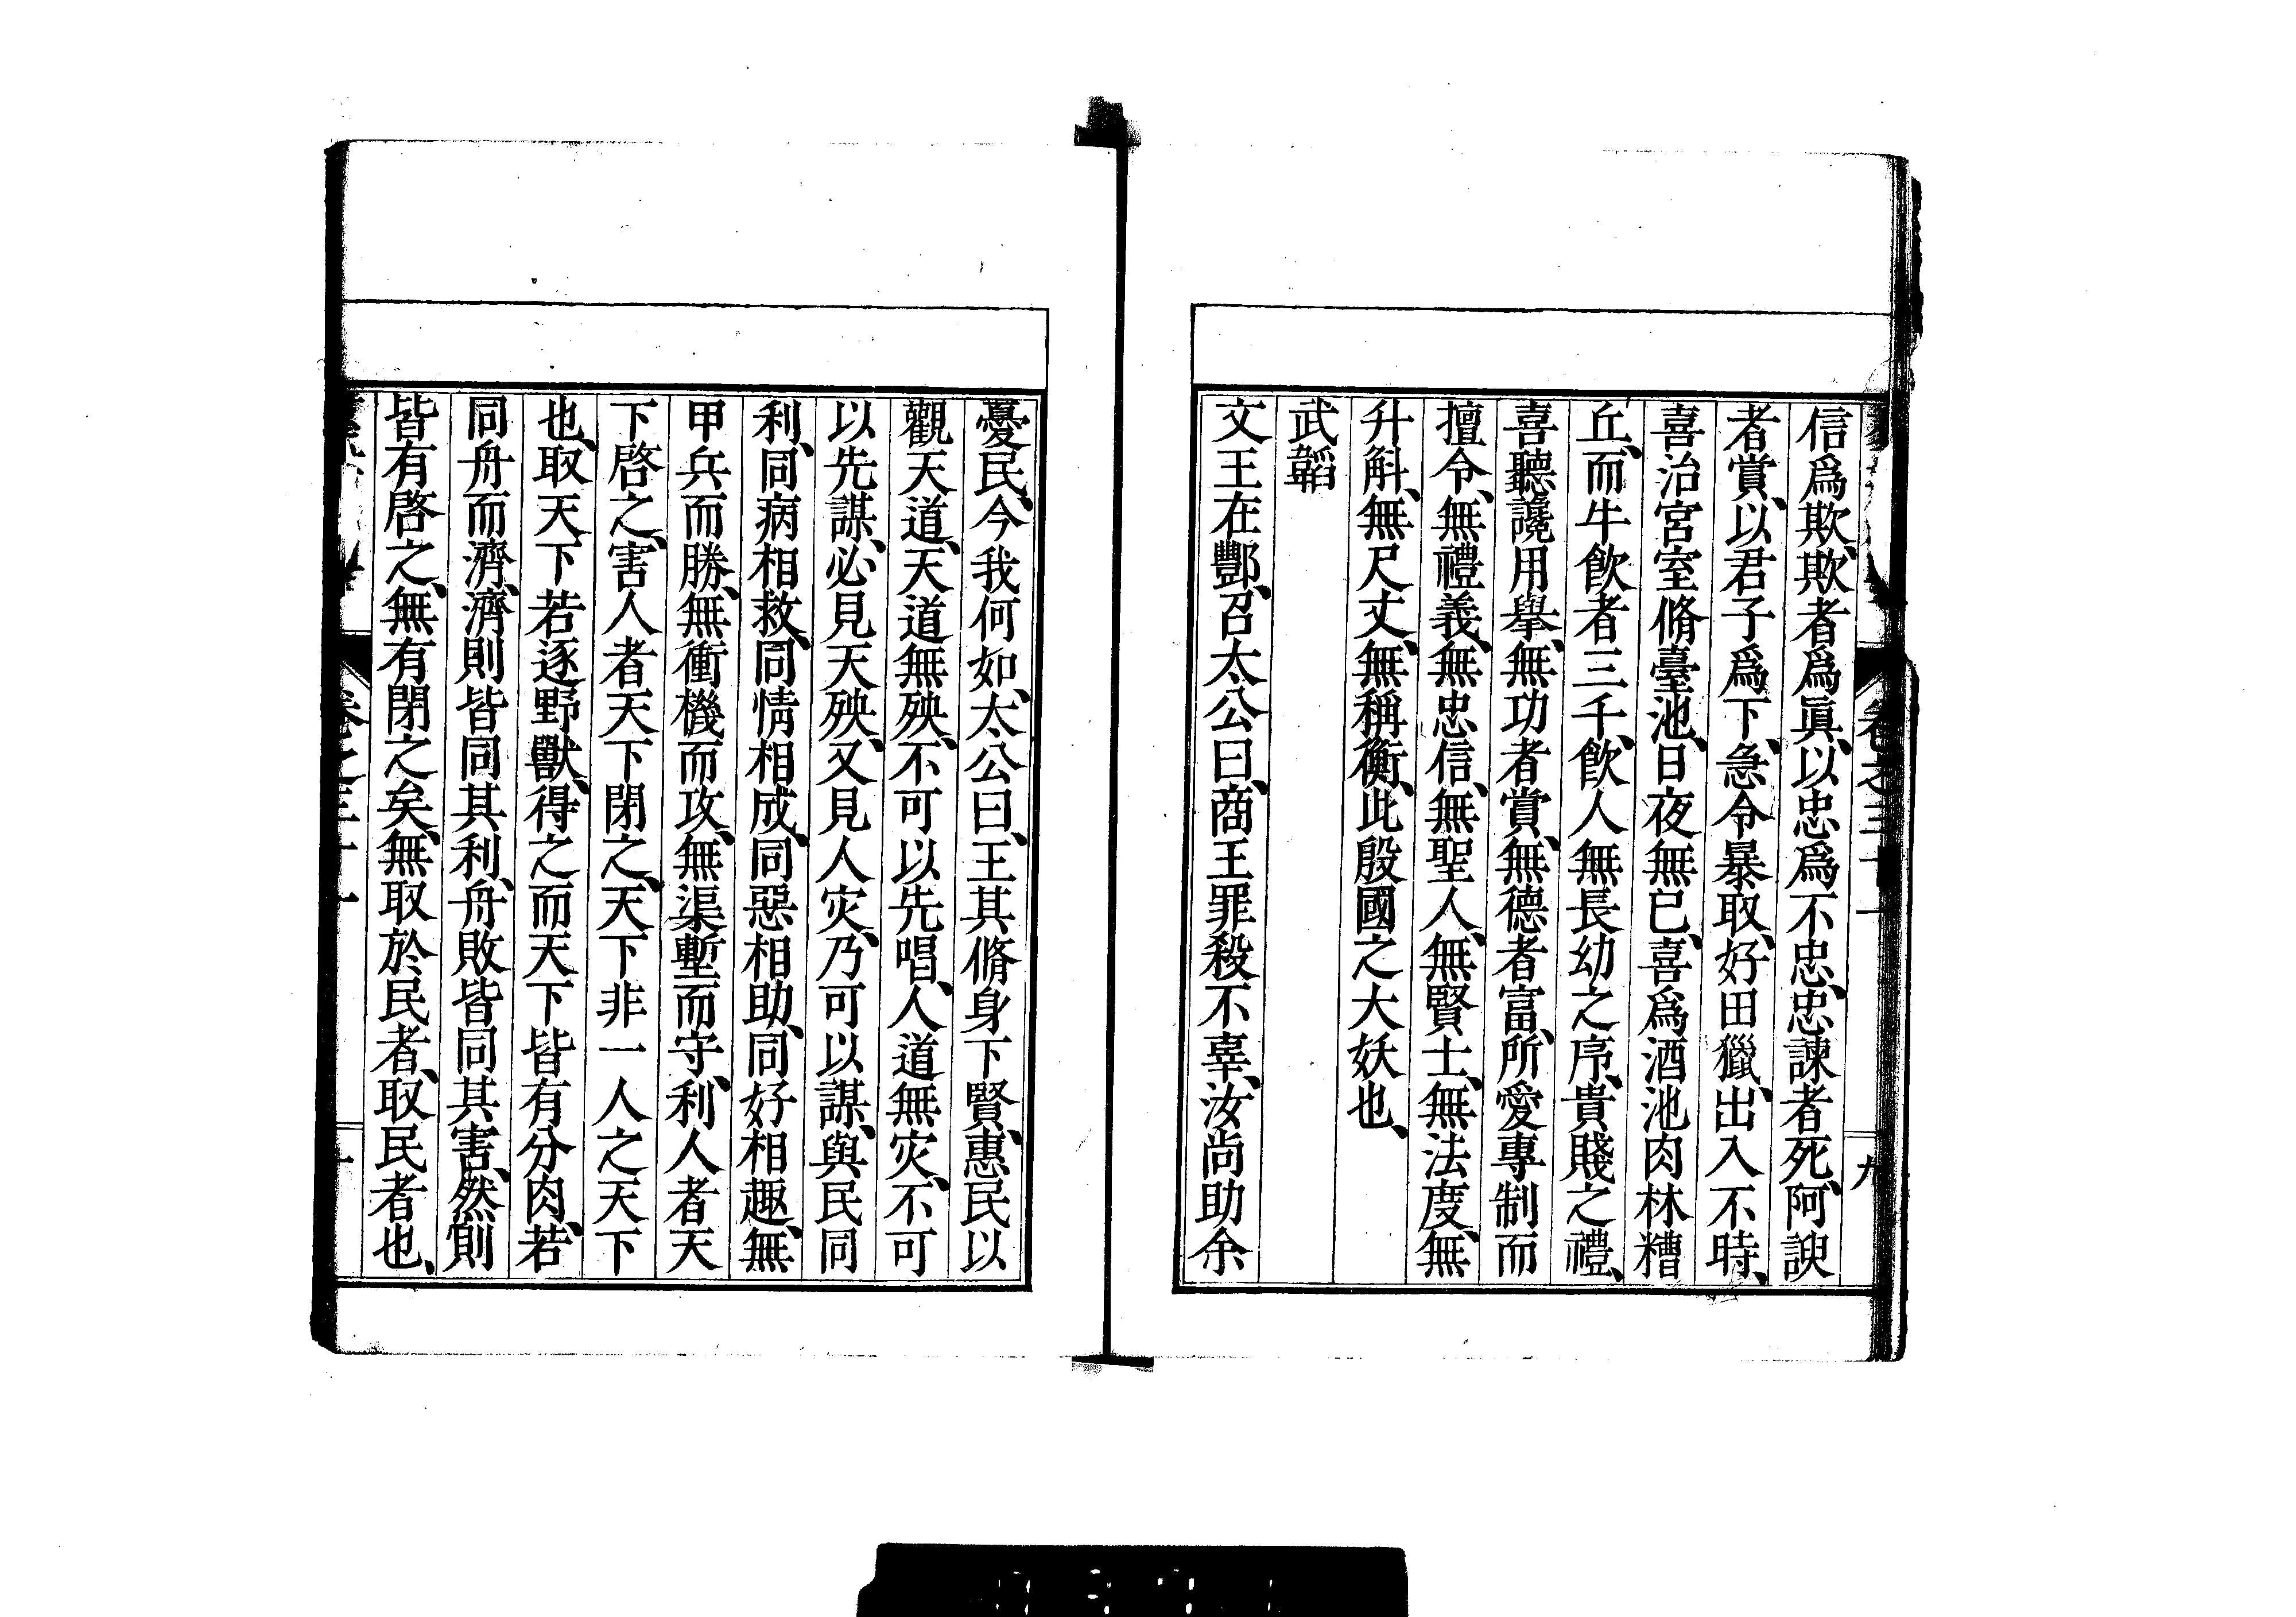 卷之三十一
九
信爲欺、欺者爲眞、以忠爲不忠、忠諫者死、阿諛
者賞、以君子爲下、急令暴取、好田獵、出入不時、
喜治宮室脩臺池、日夜無已、喜爲酒池肉林糟
丘、而牛飮者三千、飮人無長幼之序、貴賤之禮、
喜聽讒用擧、無功者賞、無德者富、所愛專制而
擅令、無禮義、無忠信、無聖人、無賢士、無法度、無
升斛、無尺丈、無稱衡、此殷國之大妖也、
武韜
文王在酆、召太公曰、商王罪殺不辜、汝尚助余
憂民、今我何如、太公曰、王其脩身下賢、惠民以
觀天道、天道無殃、不可以先唱、人道無灾、不可
以先謀、必見天殃、又見人灾、乃可以謀、與民同
利、同病相救、同情相成、同惡相助、同好相趣、無
甲兵而勝、無衝機而攻、無渠塹而守、利人者天
下啓之、害人者天下閉之、天下非一人之天下
也、取天下若逐野獸、得之而天下皆有分肉、若
同舟而濟、濟則皆同其利、舟敗皆同其害、然則
皆有啓之、無有閉之矣、無取於民者、取民者也、
卷之三十一